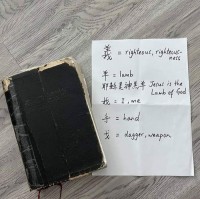 義 = righteous, righteous-
ness
羊 = lamb
耶穌是神羔羊 Jesus is the
Lamb of God
我 = I, me
手 = hand
戈 = dagger, weapon